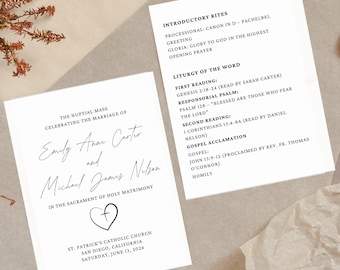 THE NUPTIAL MASS
CELEBRATING THE MARRIAGE OF
Emily Anne Carter
and
Michael James Nelson
IN THE SACRAMENT OF HOLY MATRIMONY
ST. PATRICK'S CATHOLIC CHURCH
SAN DIEGO, CALIFORNIA
SATURDAY, JUNE 13, 2026
INTRODUCTORY RITES
PROCESSIONAL: CANON IN D – PACHELBEL
GREETING
GLORIA: GLORY TO GOD IN THE HIGHEST
OPENING PRAYER
LITURGY OF THE WORD
FIRST READING:
GENESIS 2:18-24 (READ BY SARAH CARTER)
RESPONSORIAL PSALM:
PSALM 128 – "BLESSED ARE THOSE WHO FEAR
THE LORD"
SECOND READING:
1 CORINTHIANS 13:4-8A (READ BY DANIEL
NELSON)
GOSPEL ACCLAMATION
GOSPEL:
JOHN 15:9-12 (PROCLAIMED BY REV. FR. THOMAS
O'CONNOR)
HOMILY